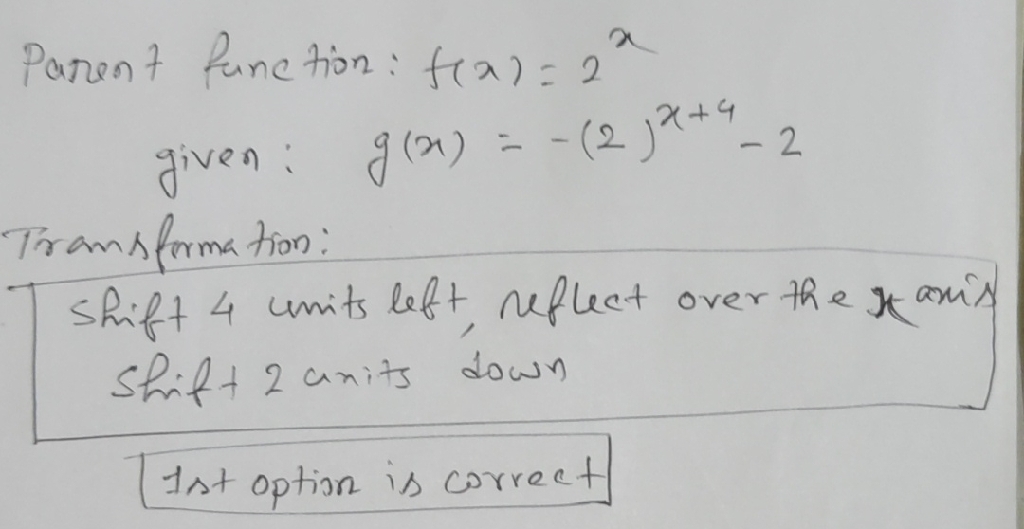 Parent function: f(x) = 2^x
given: g(x) = -(2)^{x+4} - 2
Transformation:
Shift 4 units left, reflect over the x axis
Shift 2 units down
1st option is correct